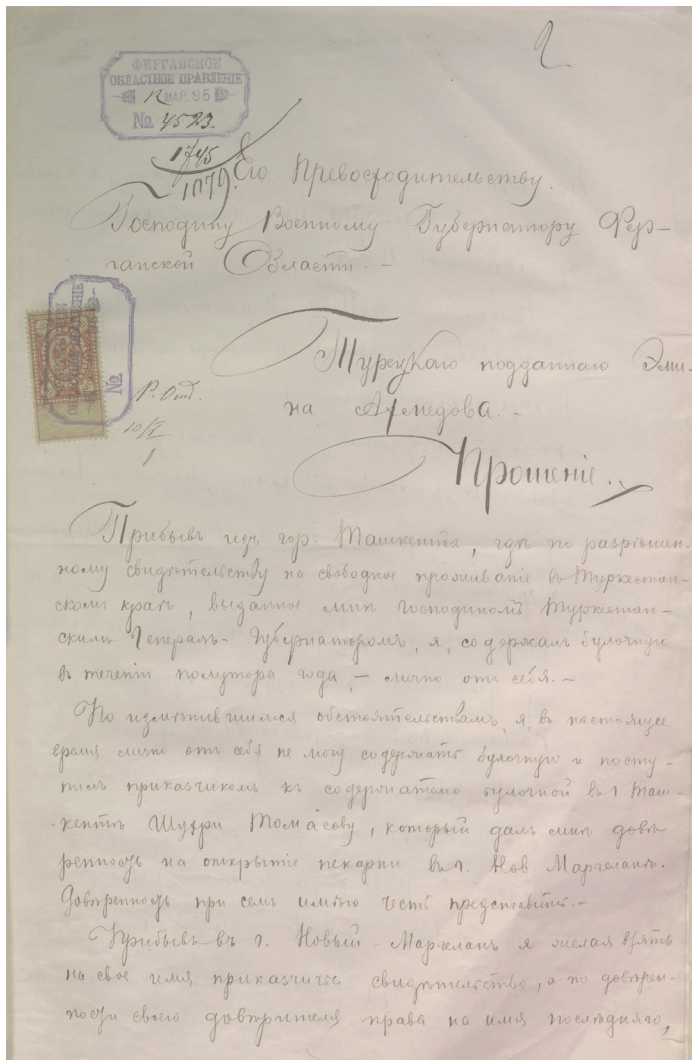 2
ФЕРГАНСКОЕ
ОБЛАСТНОЕ ПРАВЛЕНІЕ
12 МАР. 95
№ 4523.
1745
1079.
Его Превосходительству.
Господину Военному Губернатору Фер-
ганской Области. -
Турецкаго подданнаго Эми-
на Ахмедова. -
Р. Отд.
№
10/V
1
Прошеніе.
Прибывъ изъ гор. Ташкента, гдѣ по разрѣшен-
ному свидѣтельству на свободное проживаніе въ Туркестан-
скомъ краѣ, выданное мнѣ Господиномъ Туркестан-
скимъ Генералъ-Губернаторомъ, я, содержалъ булочную
въ теченіи полутора года, - лично отъ себя. -
По измѣнившимся обстоятельствамъ, я, въ настоящее
время лично отъ себя не могу содержать булочную и посту-
пилъ приказчикомъ къ содержателю булочной въ г. Таш-
кентѣ Шухри Томасову, который далъ мнѣ довѣ
ренность на открытіе пекарни въ г. Нов. Маргеланѣ.
Довѣренность при семъ имѣю честь представить. -
Прибывъ въ г. Новый-Маргеланъ я желая взять
на свое имя приказчичье свидѣтельство, а по довѣрен-
ности своего довѣрителя права на имя послѣдняго,